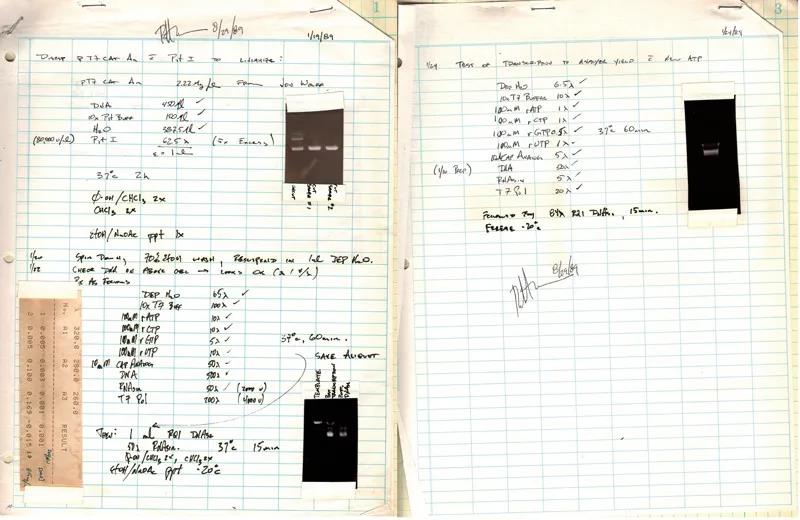 1
8/29/89
1/19/89
Digest pT7 CAT An c̄ Pst I to linearize:
pT7 CAT An 2.22 mg/ml From
DNA 450λ ✓
10x Pst Buff 100λ ✓
H2O 387.5λ ✓
(80,000 u/ml) Pst I 62.5λ ✓ (5x Excess!)
1 ml
37°C 2h
Φ-OH/CHCl3 2x
CHCl3 2x
EtOH/NaOAc ppt 1x
1/20 Spin Down, 70% EtOH wash, resuspend in 1ml DEP H2O.
1/22 Check DNA on above gel → looks OK
Rx As Follows
DEP H2O 65λ ✓
10x T7 Buff 100λ ✓
100mM rATP 10λ ✓
100mM rCTP 10λ ✓
100mM rGTP 5λ ✓
100mM rUTP 10λ ✓
10mM CAP Analog 50λ ✓
DNA 500λ ✓
RNAsin 50λ ✓ (2000 u)
T7 Pol 200λ ✓
37°C, 60 min.
Save Aliquot
Template
Then: 1 ml RQ1 DNAse
50λ RNAsin. 37°C 15 min
Φ-OH/CHCl3 2x, CHCl3 2x
EtOH/NaOAc ppt -20°C
λ 320.0 280.0 260.0
No. A1 A2 A3 RESULT
1 0.005 0.003 0.001 0.001
2 0.005 0.100 0.169
3
1/24/89
1/24 Test of Transcription to Analyze Yield c̄ New ATP
DEP H2O 6.5λ ✓
10x T7 Buffer 10λ ✓
100mM rATP 1λ ✓
100mM rCTP 1λ ✓
100mM rGTP 0.5λ ✓ 37°C 60min
100mM rUTP 1λ ✓
10mM CAP Analog 5λ ✓
DNA 50λ ✓
RNAsin 5λ ✓
T7 Pol 20λ ✓
Followed by 84λ RQ1 DNAse, 15 min.
Freeze -20°C
8/29/89